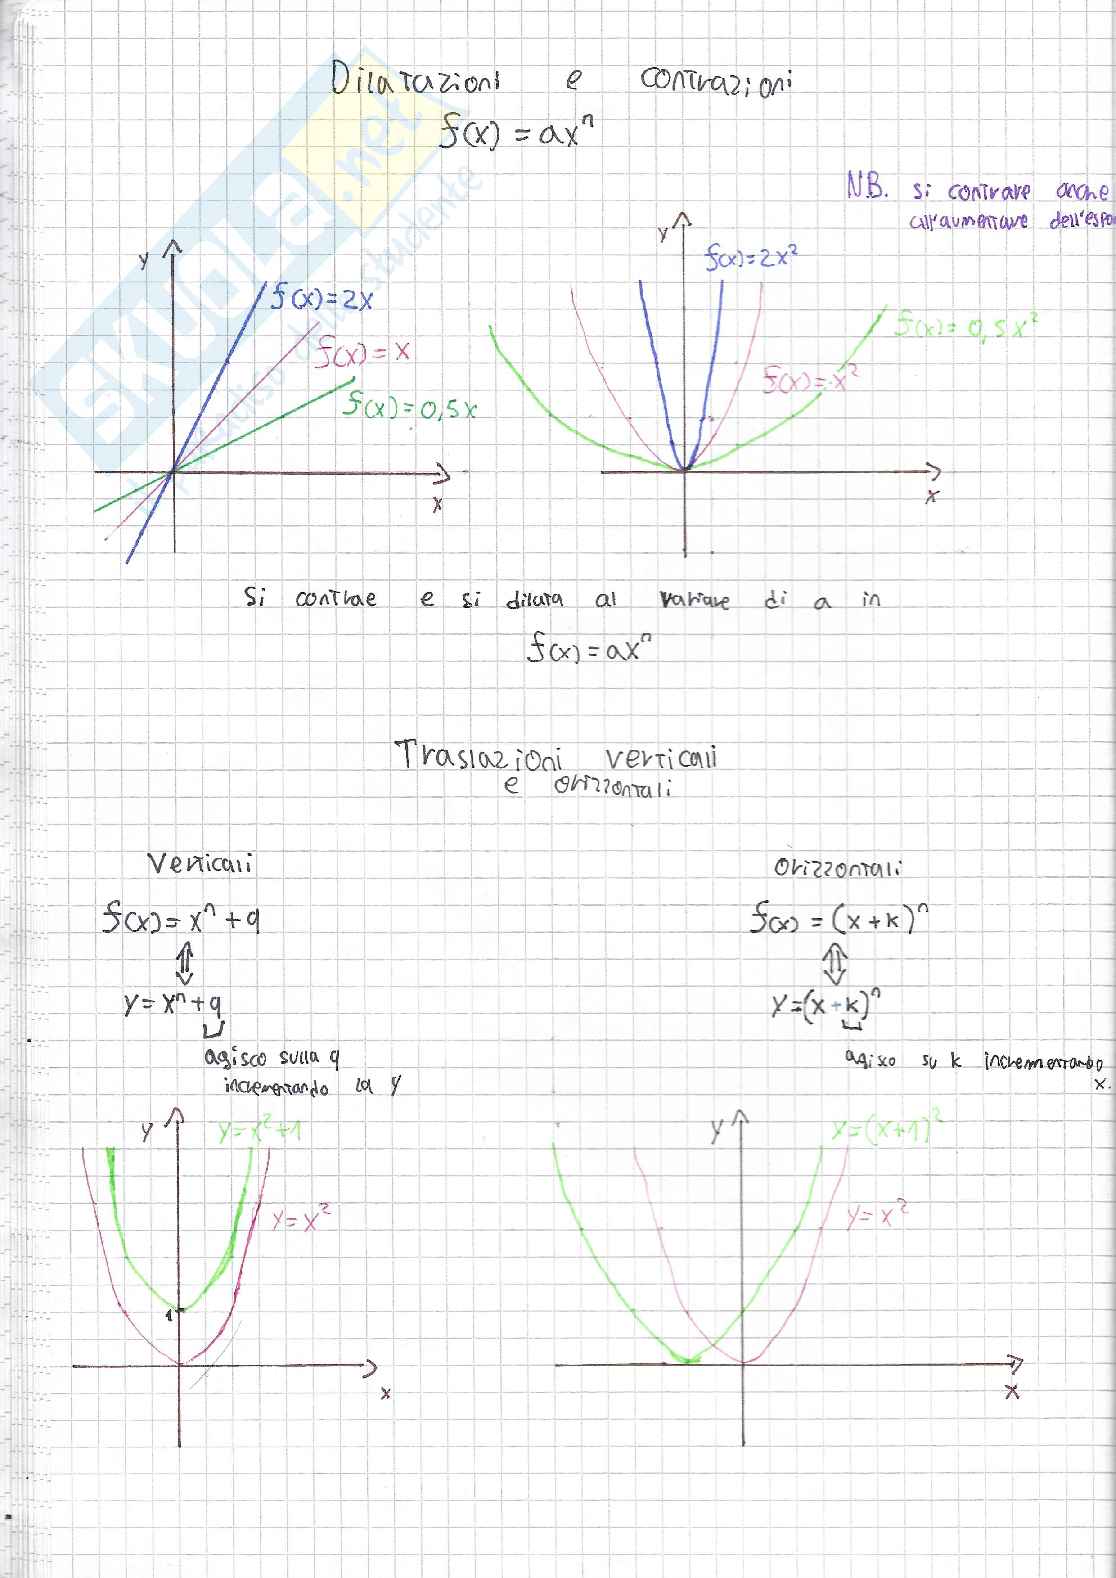 Dilatazioni e contrazioni
f(x) = axⁿ
N.B. si contrare anche
all'aumentare dell'espo
y
f(x)=2x
f(x)=x
f(x)=0,5x
x
y
f(x)=2x²
f(x)=0,5x²
f(x)=x²
x
Si contrae e si dilata al variare di a in
f(x)=axⁿ
Traslazioni verticali
e orizzontali
Verticali
f(x)=xⁿ+q
⇕
y=xⁿ+q
agisco sulla q
incrementando la y
y
y=x²+1
y=x²
1
x
Orizzontali
f(x) = (x+k)ⁿ
⇕
y=(x+k)ⁿ
agisco su k incrementando
x.
y
x=(x+1)²
y=x²
x
SKUOLA.net